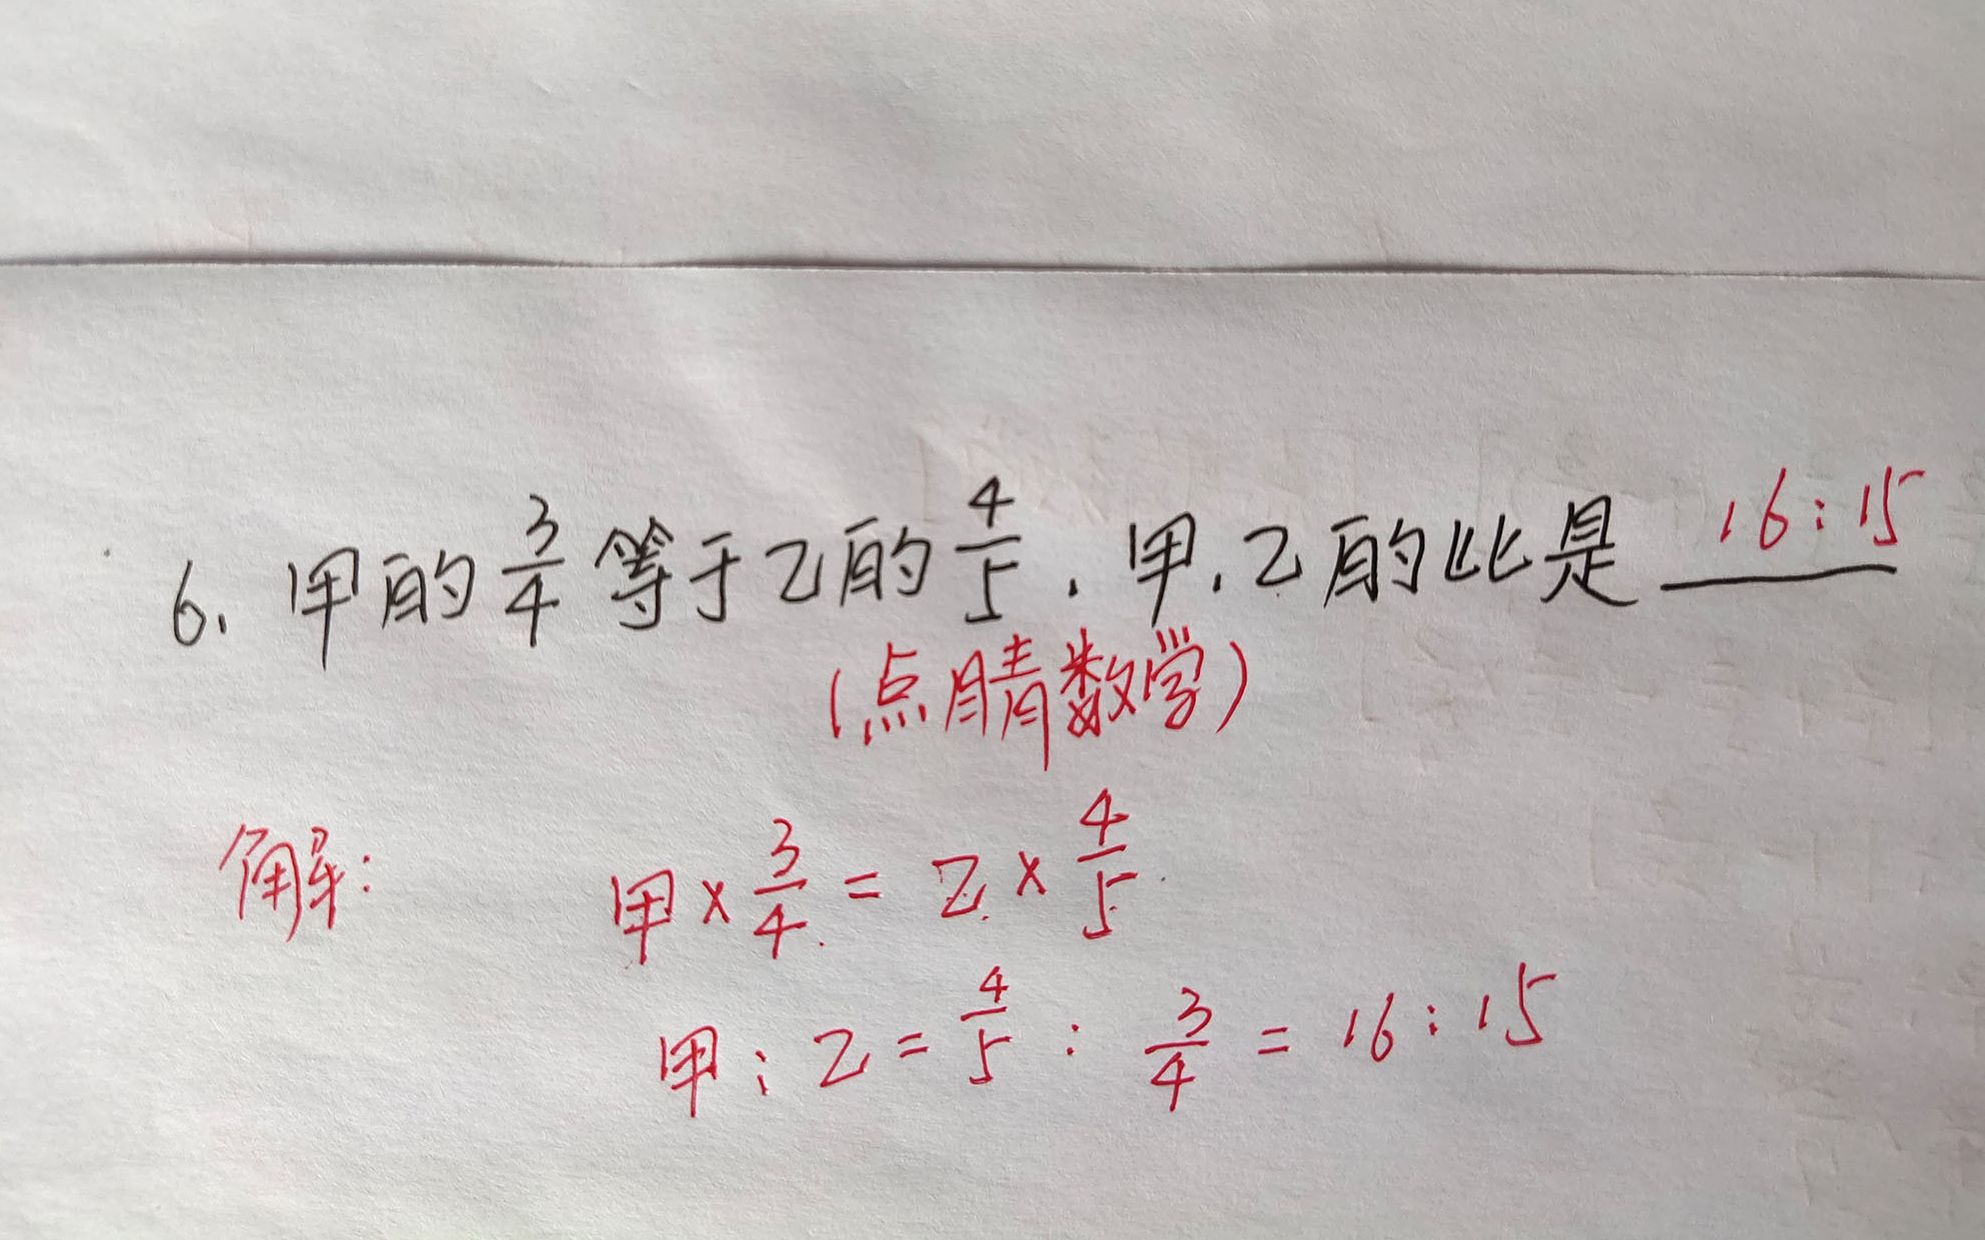 6. 甲的3/4等于乙的4/5,甲、乙的比是 16:15
(点睛数学)
解: 甲×3/4=乙×4/5
甲:乙=4/5:3/4=16:15